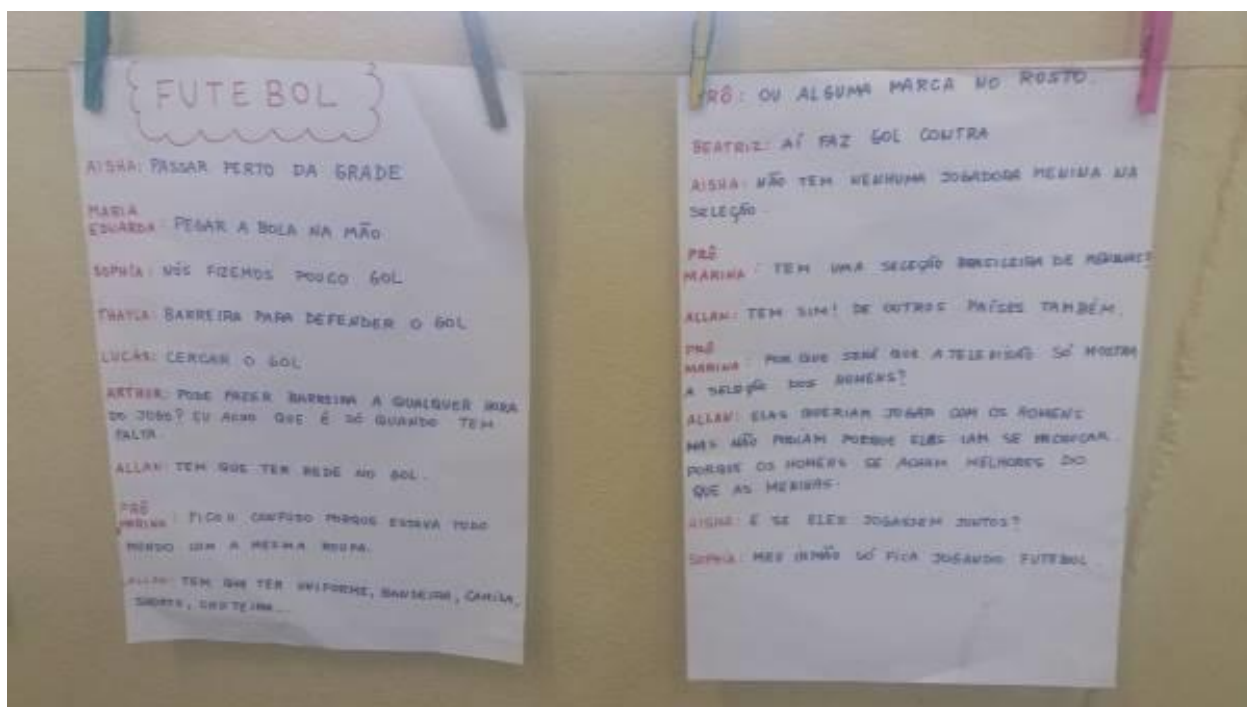 FUTEBOL
AISHA: PASSAR PERTO DA GRADE
MARIA
EDUARDA: PEGAR A BOLA NA MÃO
SOPHIA: NÓS FIZEMOS POUCO GOL
THAYLA: BARREIRA PARA DEFENDER O GOL
LUCAS: CERCAR O GOL
ARTHUR: PODE FAZER BARREIRA A QUALQUER HORA
DO JOGO? EU ACHO QUE É SÓ QUANDO TEM
FALTA.
ALLAN: TEM QUE TER REDE NO GOL.
PRÔ
MARINA: FICOU CONFUSO PORQUE ESTAVA TODO
MUNDO COM A MESMA ROUPA.
ALLAN: TEM QUE TER UNIFORME, BANDEIRA, CAMISA,
SHORTS, CHUTEIRA...
PRÔ: OU ALGUMA MARCA NO ROSTO.
BEATRIZ: AÍ FAZ GOL CONTRA
AISHA: NÃO TEM NENHUMA JOGADORA MENINA NA
SELEÇÃO.
PRÔ
MARINA: TEM UMA SELEÇÃO BRASILEIRA DE MENINAS?
ALLAN: TEM SIM! DE OUTROS PAÍSES TAMBÉM.
PRÔ
MARINA: POR QUE SERÁ QUE A TELEVISÃO SÓ MOSTRA
A SELEÇÃO DOS HOMENS?
ALLAN: ELAS QUERIAM JOGAR COM OS HOMENS
MAS NÃO PODIAM PORQUE ELAS IAM SE MACHUCAR.
PORQUE OS HOMENS SE ACHAM MELHORES DO
QUE AS MENINAS.
AISHA: E SE ELES JOGASSEM JUNTOS?
SOPHIA: MEU IRMÃO SÓ FICA JOGANDO FUTEBOL.